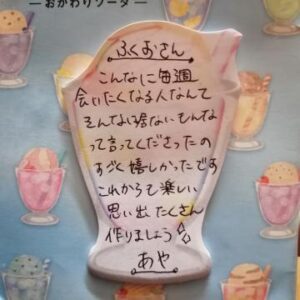 —おかわりソーダ—
ふくおさん
こんなに毎週
会いたくなる人なんて
そんなに居ないもんな
って言ってくださったの
すごく嬉しかったです
これからも楽しい
思い出たくさん
作りましょう☆
あや